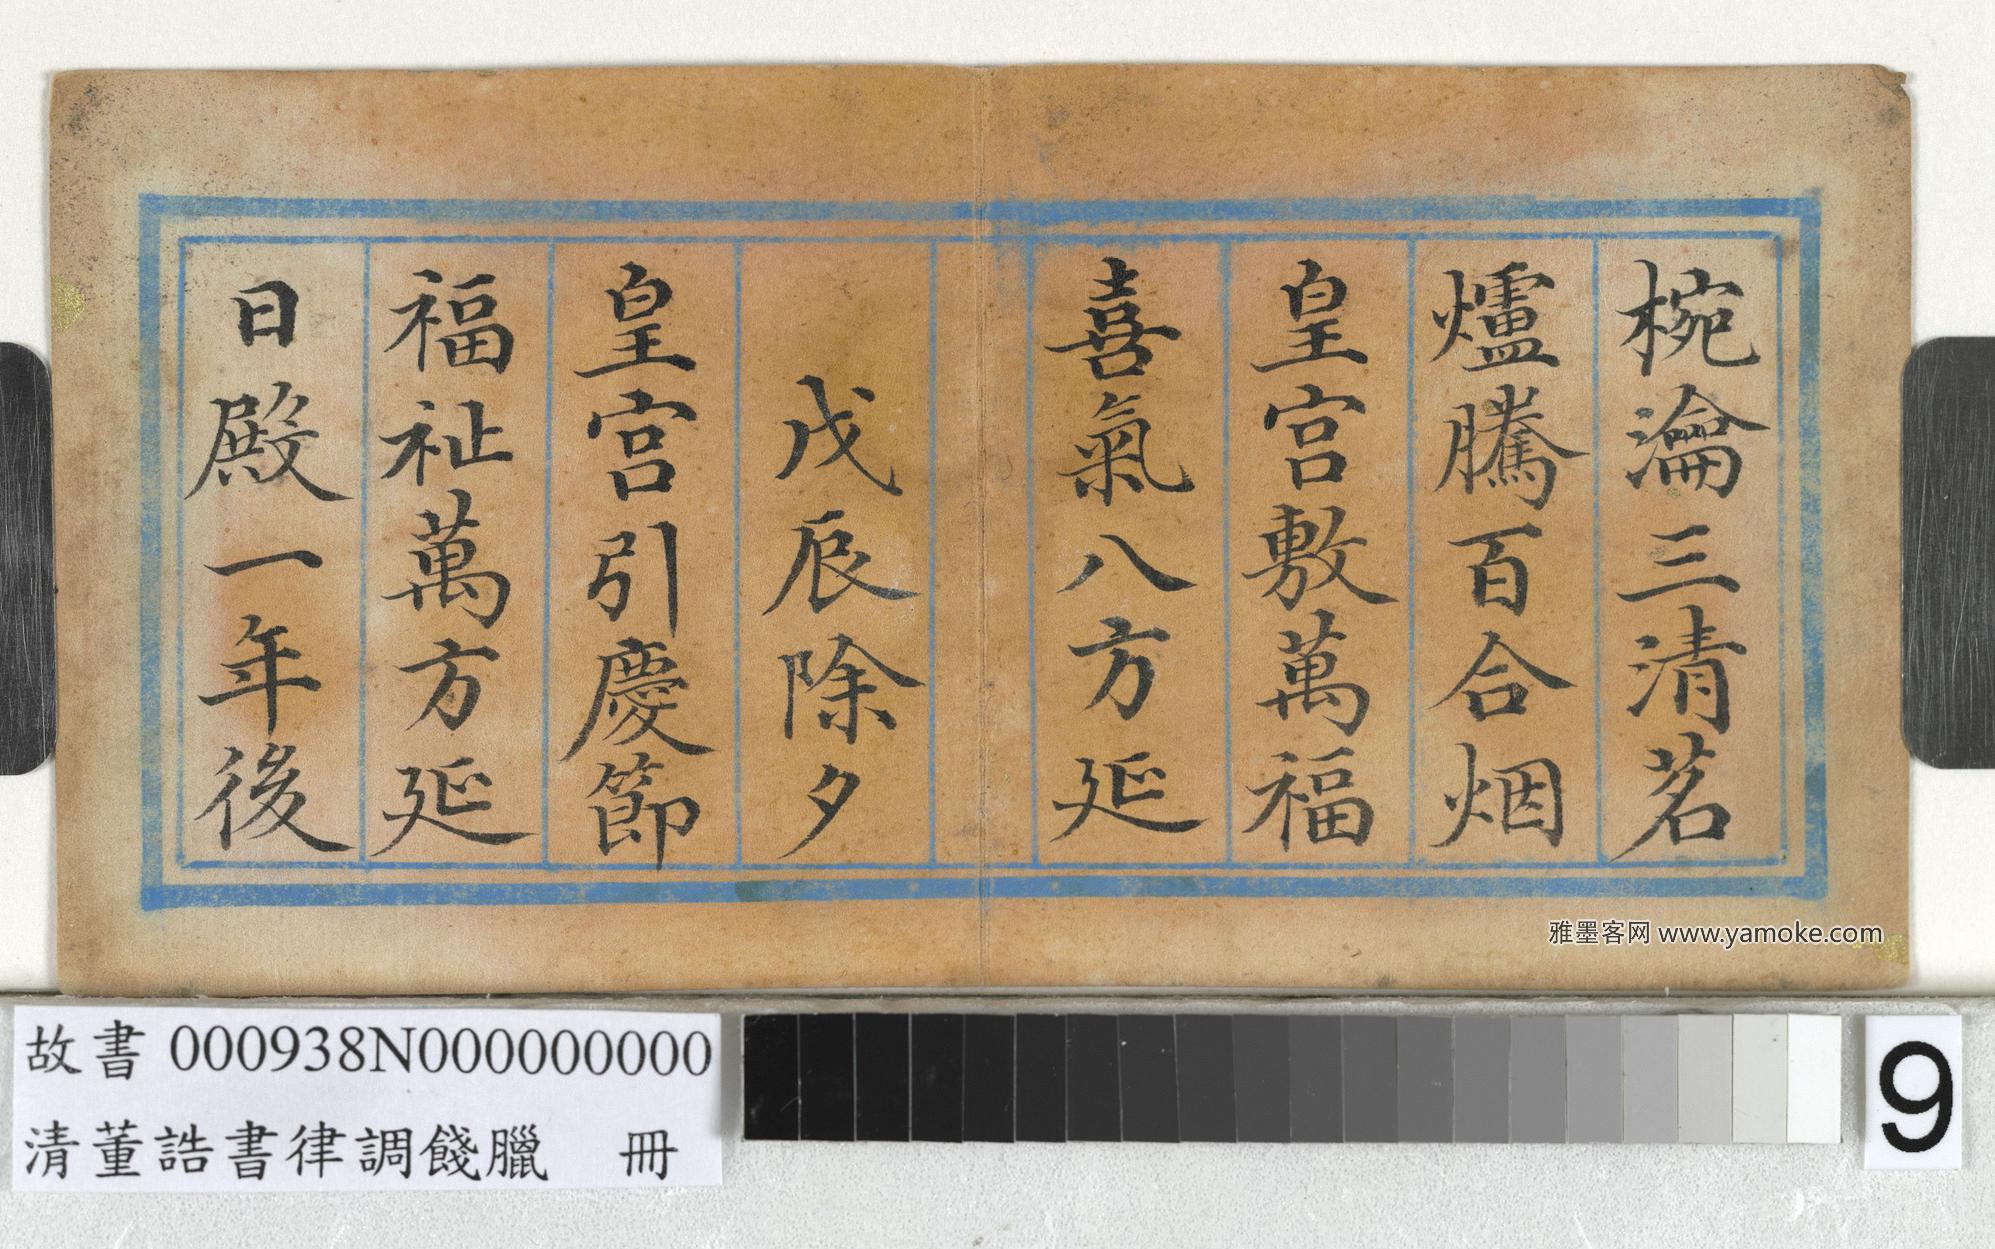 椀瀹三清茗
爐騰百合烟
皇宫敷萬福
喜氣八方延
戊辰除夕
皇宫引慶節
福祉萬方延
日殿一年後
雅墨客网 www.yamoke.com
故書 000938N000000000
清董誥書律調餞臘 冊
9